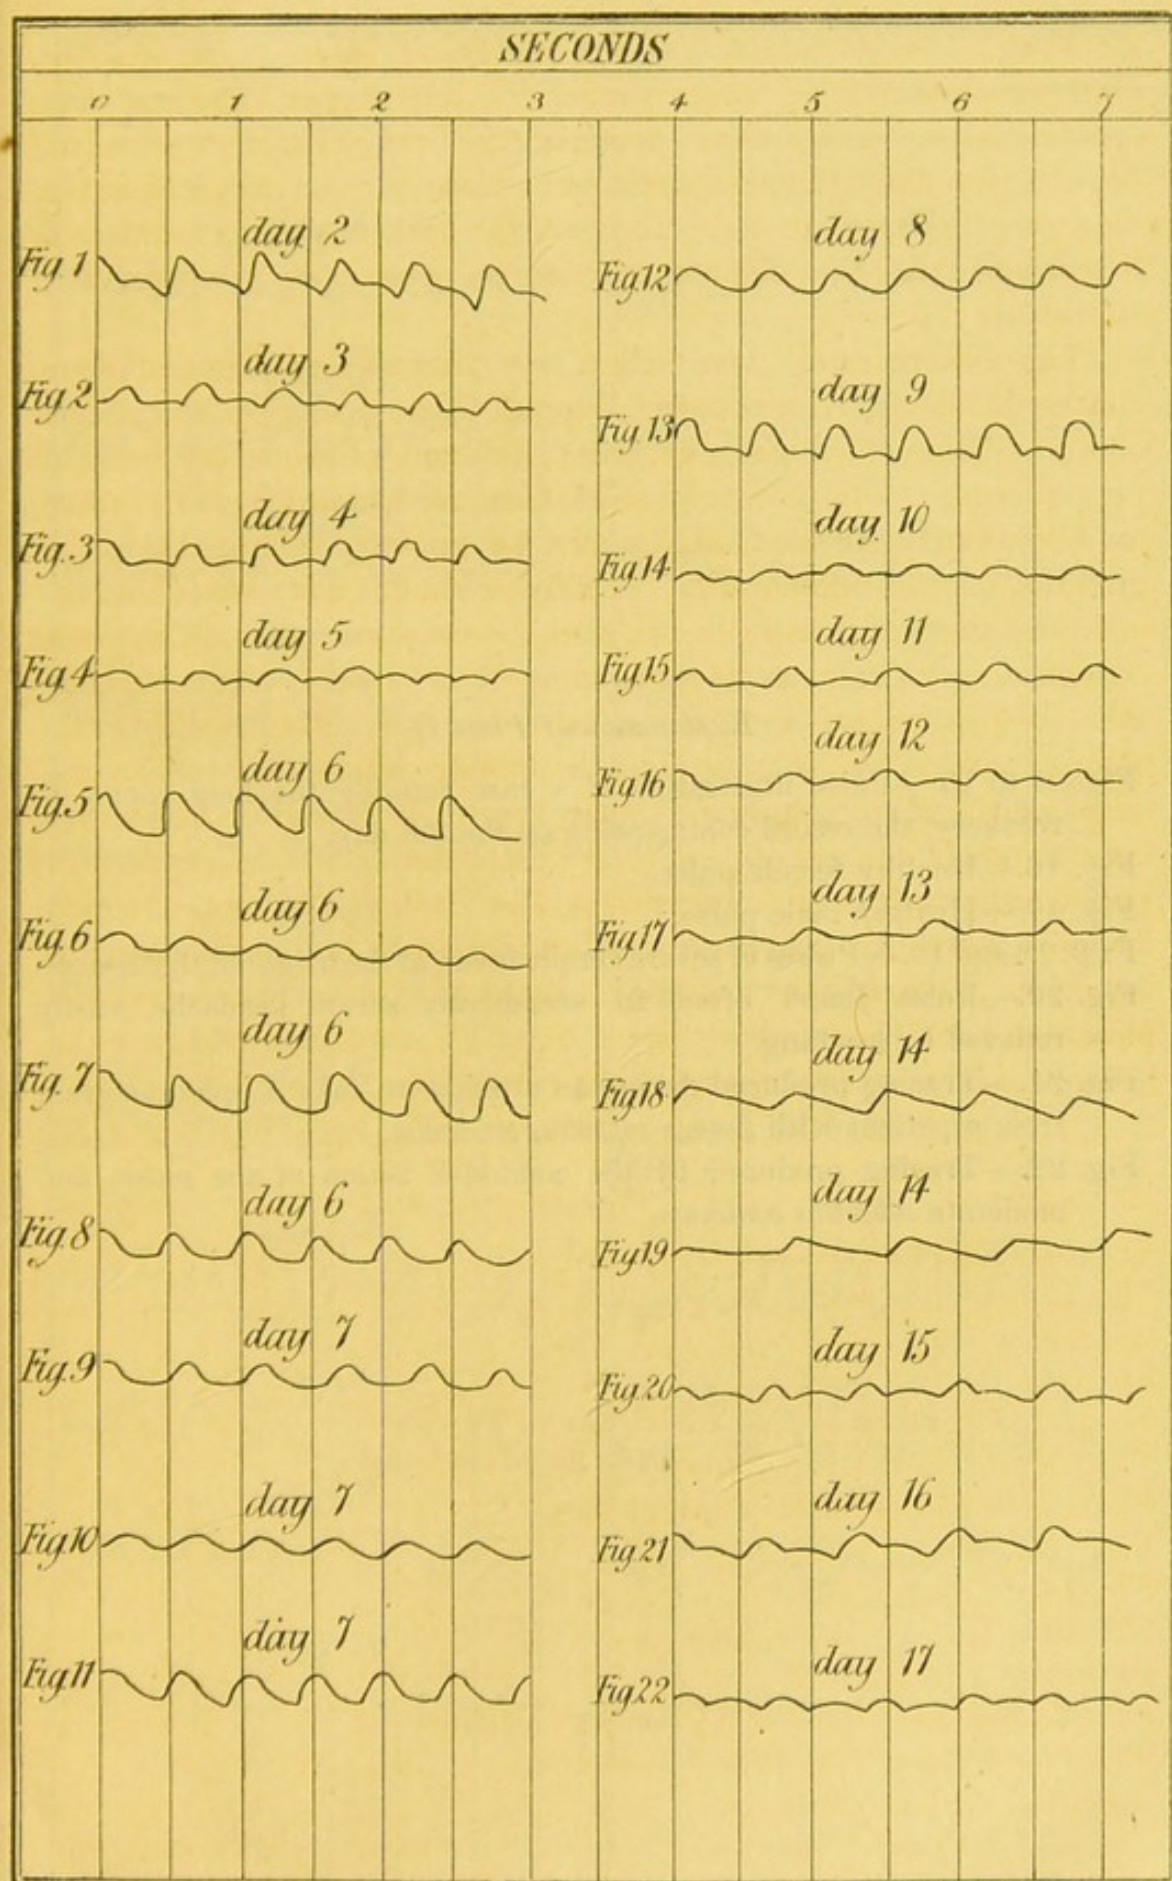 SECONDS
0 1 2 3 4 5 6 7
day 2
Fig. 1
day 3
Fig. 2
day 4
Fig. 3
day 5
Fig. 4
day 6
Fig. 5
day 6
Fig. 6
day 6
Fig. 7
day 6
Fig. 8
day 7
Fig. 9
day 7
Fig. 10
day 7
Fig. 11
day 8
Fig. 12
day 9
Fig. 13
day 10
Fig. 14
day 11
Fig. 15
day 12
Fig. 16
day 13
Fig. 17
day 14
Fig. 18
day 14
Fig. 19
day 15
Fig. 20
day 16
Fig. 21
day 17
Fig. 22